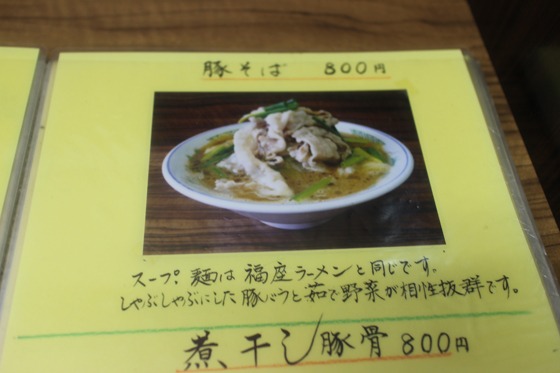 豚そば 800円
スープ、麺は福座ラーメンと同じです。
しゃぶしゃぶにした豚バラと茹で野菜が相性抜群です。
煮干し豚骨 800円